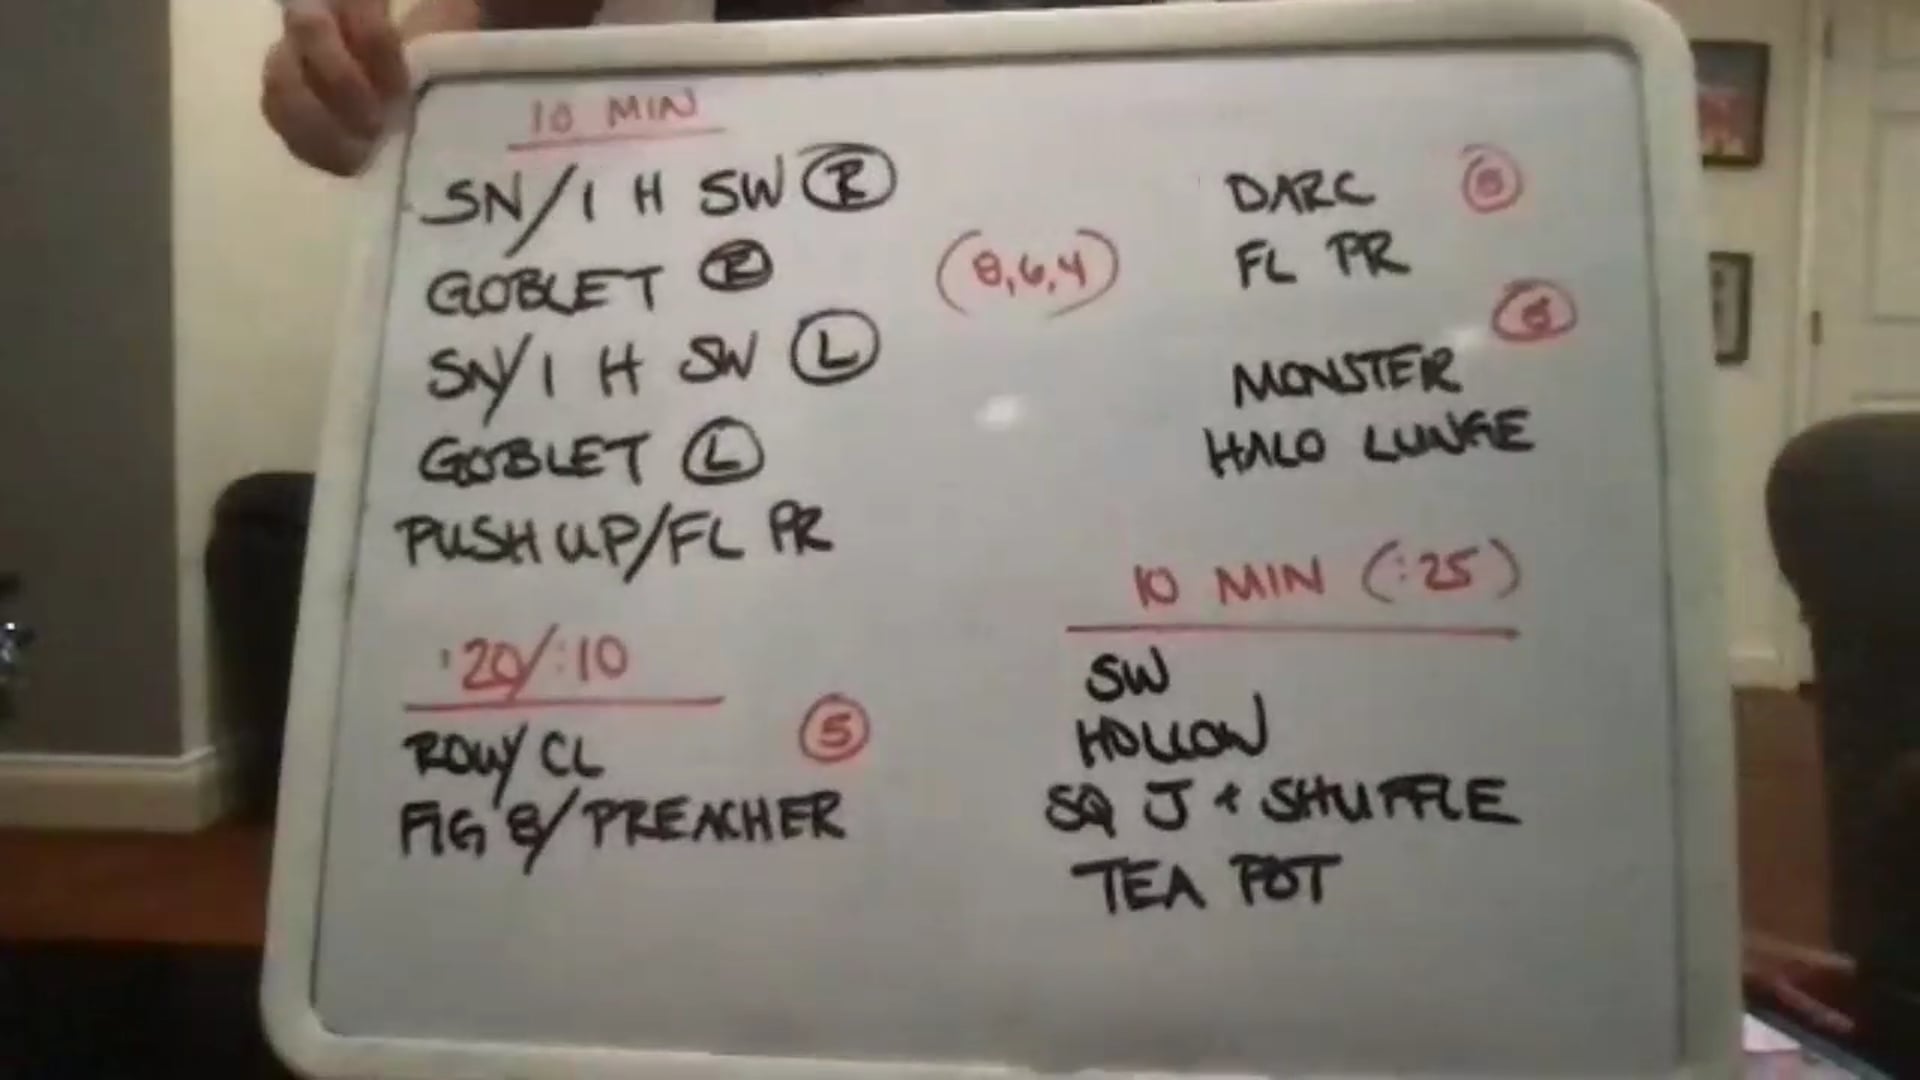 10 MIN
SN/1 H SW R
GOBLET R
SN/1 H SW L
GOBLET L
PUSH UP/FL PR
(8,6,4)
:20/:10
5
ROW/CL
FIG 8/PREACHER
DARC
FL PR
MONSTER
HALO LUNGE
10 MIN (:25)
SW
HOLLOW
SQ J + SHUFFLE
TEA POT